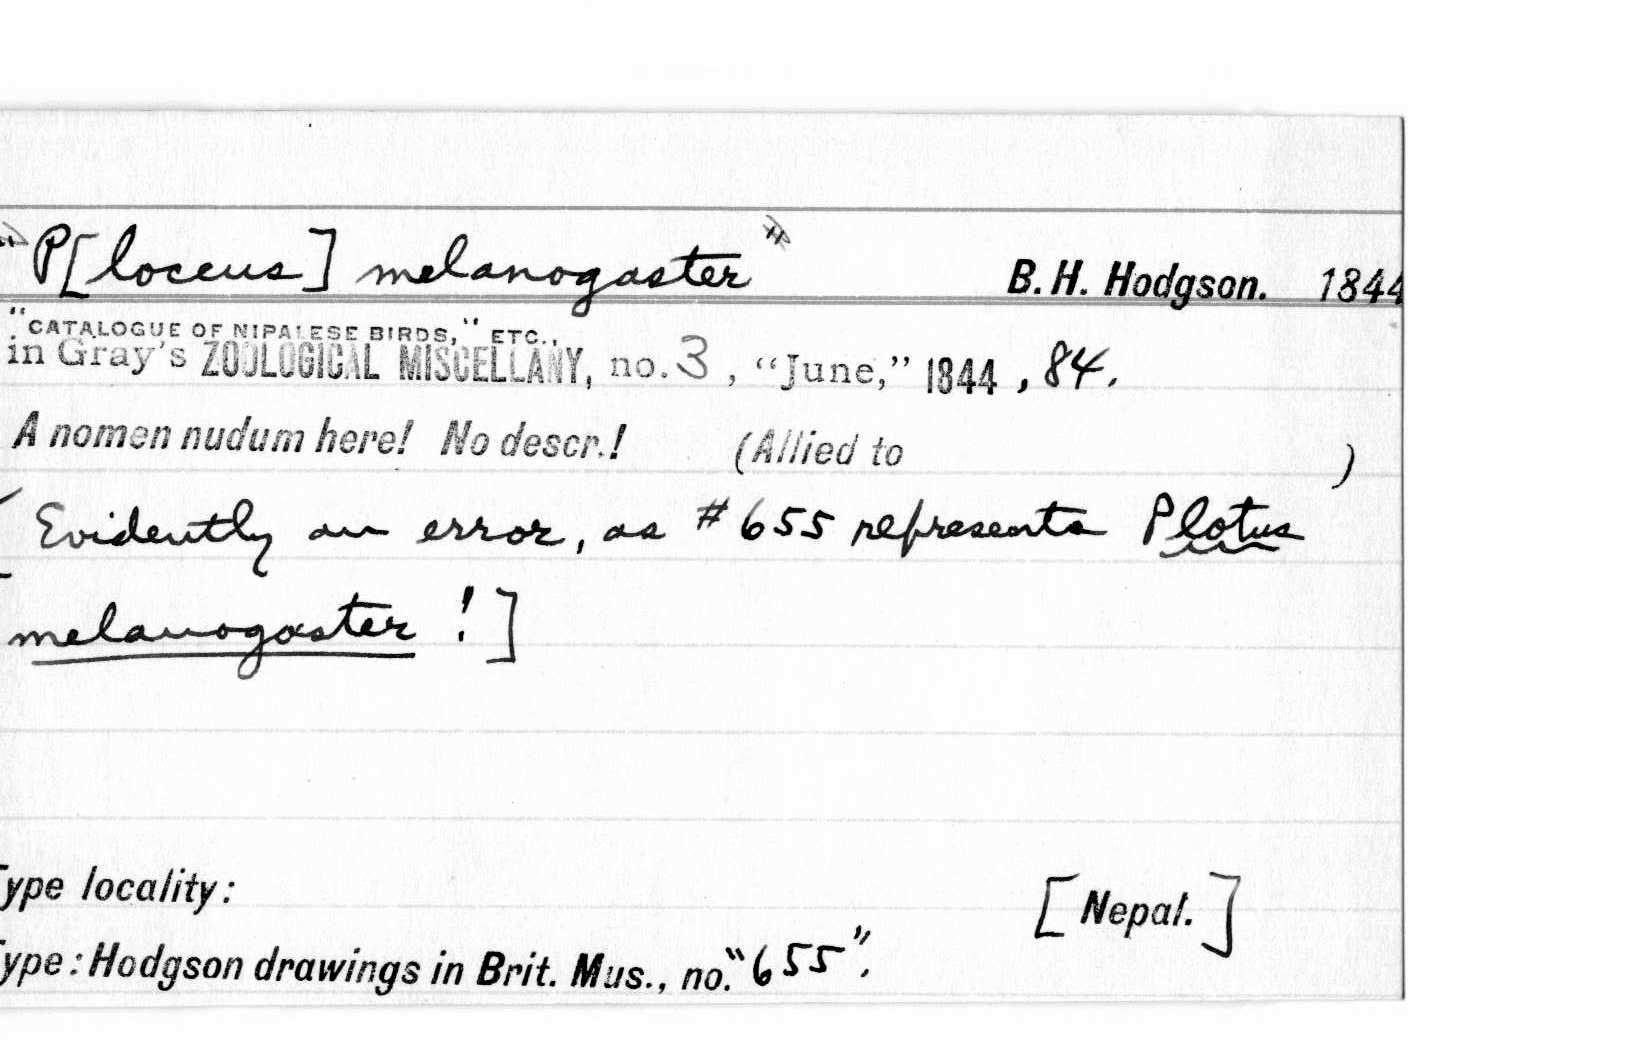 "P[loceus] melanogaster" B. H. Hodgson. 1844
"CATALOGUE OF NIPALESE BIRDS," ETC.,
in Gray's ZOOLOGICAL MISCELLANY, no. 3, "June," 1844, 84.
A nomen nudum here! No descr.! (Allied to )
[Evidently an error, as #655 represents Plotus
melanogaster!]
Type locality: [Nepal.]
Type: Hodgson drawings in Brit. Mus., no. "655".